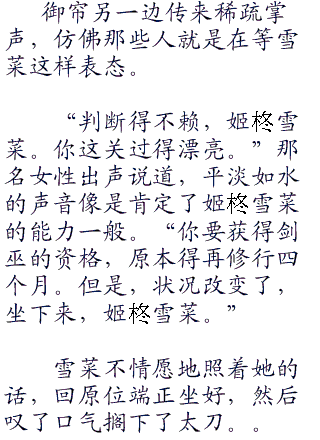 御帘另一边传来稀疏掌
声，仿佛那些人就是在等雪
菜这样表态。
“判断得不赖，姬柊雪
菜。你这关过得漂亮。”那
名女性出声说道，平淡如水
的声音像是肯定了姬柊雪菜
的能力一般。“你要获得剑
巫的资格，原本得再修行四
个月。但是，状况改变了，
坐下来，姬柊雪菜。”
雪菜不情愿地照着她的
话，回原位端正坐好，然后
叹了口气搁下了太刀。。